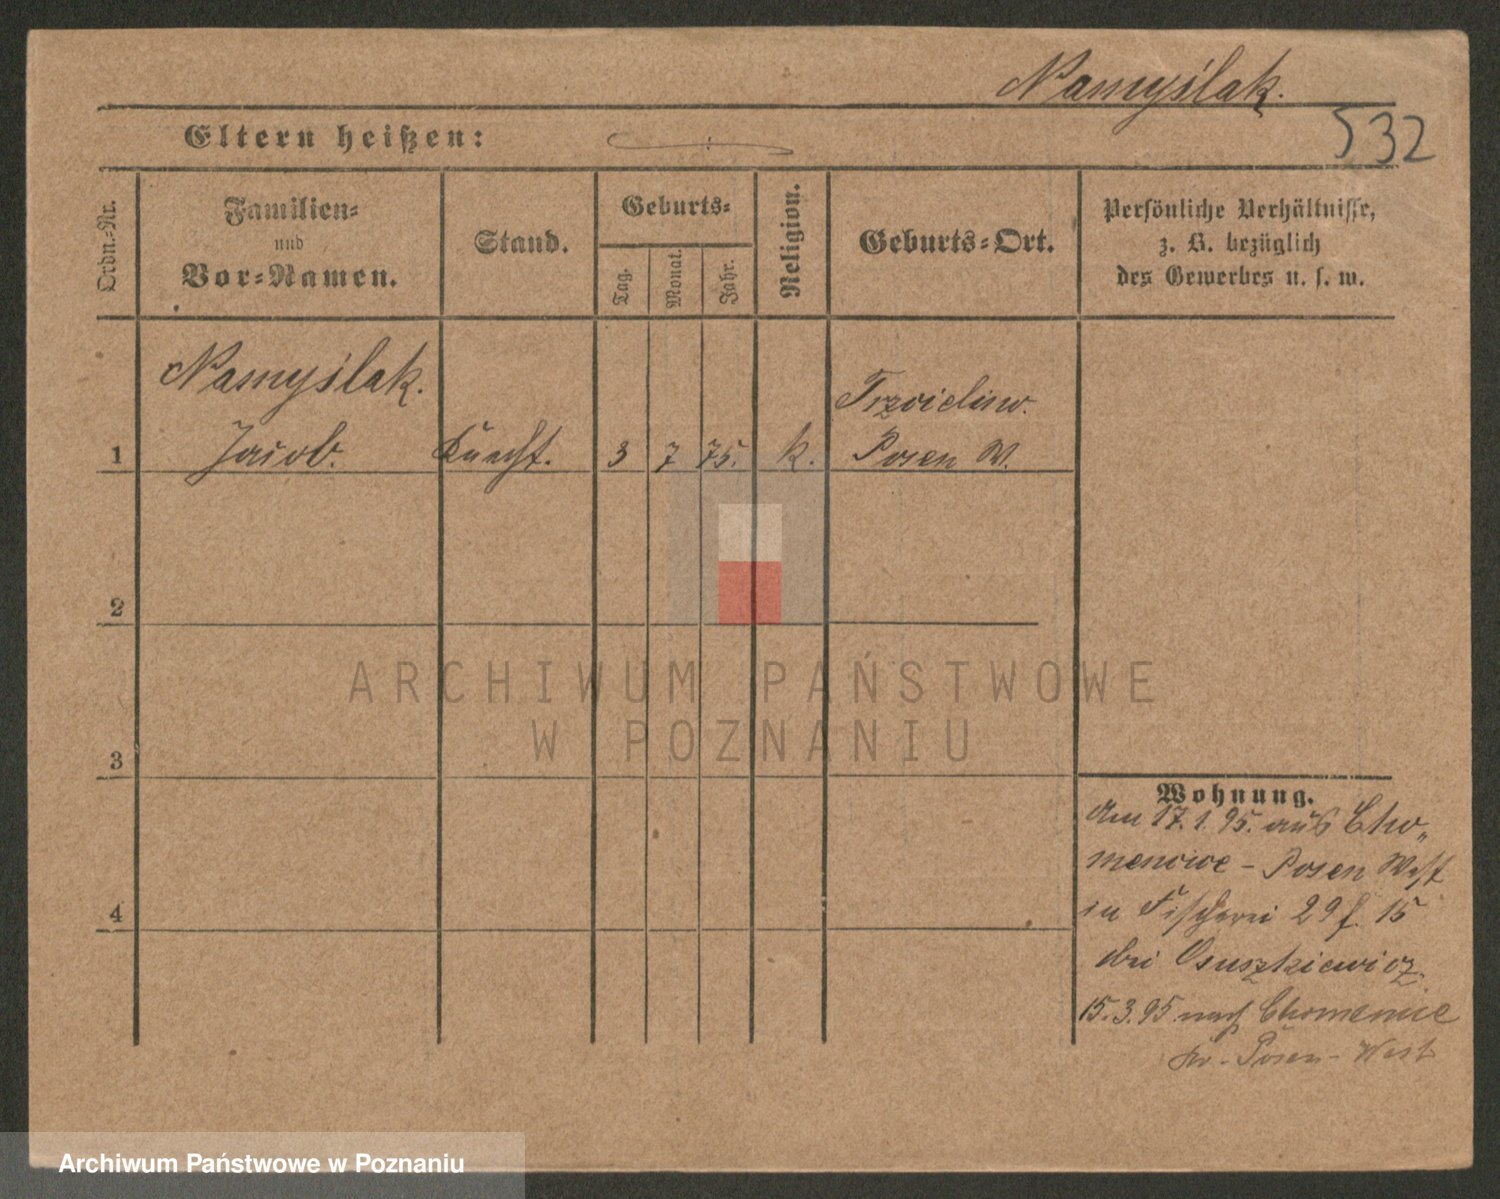 Namyślak.
532
Eltern heißen:
Ordn.-Nr.
Familien-
und
Vor-Namen.
Stand.
Geburts-
Tag.
Monat.
Jahr.
Religion.
Geburts-Ort.
Persönliche Verhältnisse,
z. B. bezüglich
des Gewerbes u. s. w.
Namyślak.
Trzcielino.
1 Jacob. Knecht. 3 7 75. k. Posen W.
2
ARCHIWUM PAŃSTWOWE
W POZNANIU
3
4
Wohnung.
Am 17.1.95. aus Cho„
mencice - Posen West
in Fischerei 29 f. 15
bei Osuszkiewicz.
15.3.95 nach Chomencice
Kr. Posen - West
Archiwum Państwowe w Poznaniu